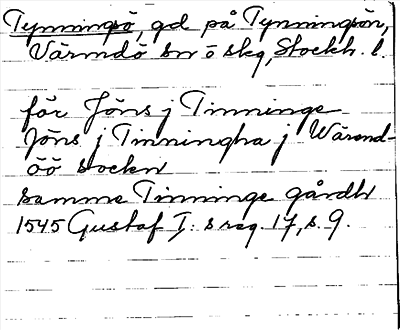 Tynningö, gd på Tynningön,
Värmdö sn o skg, Stockh. l.
för Jöns j Tinninge
Jöns j Tinningha j Wärend-
öö sockn
samme Tinninge gårdh
1545 Gustaf I:s reg. 17, s. 9.